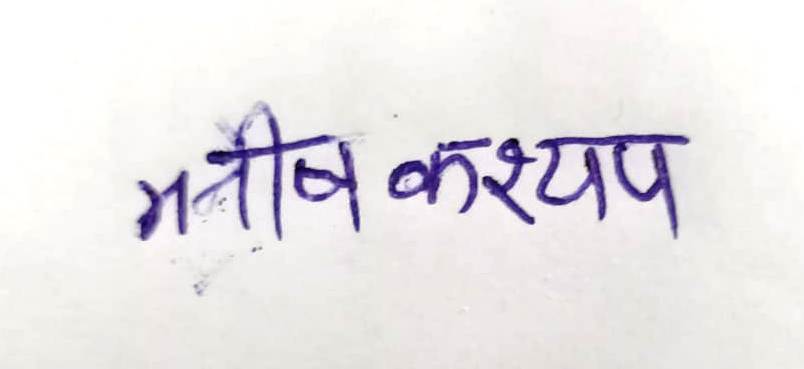 मनीष कश्यप